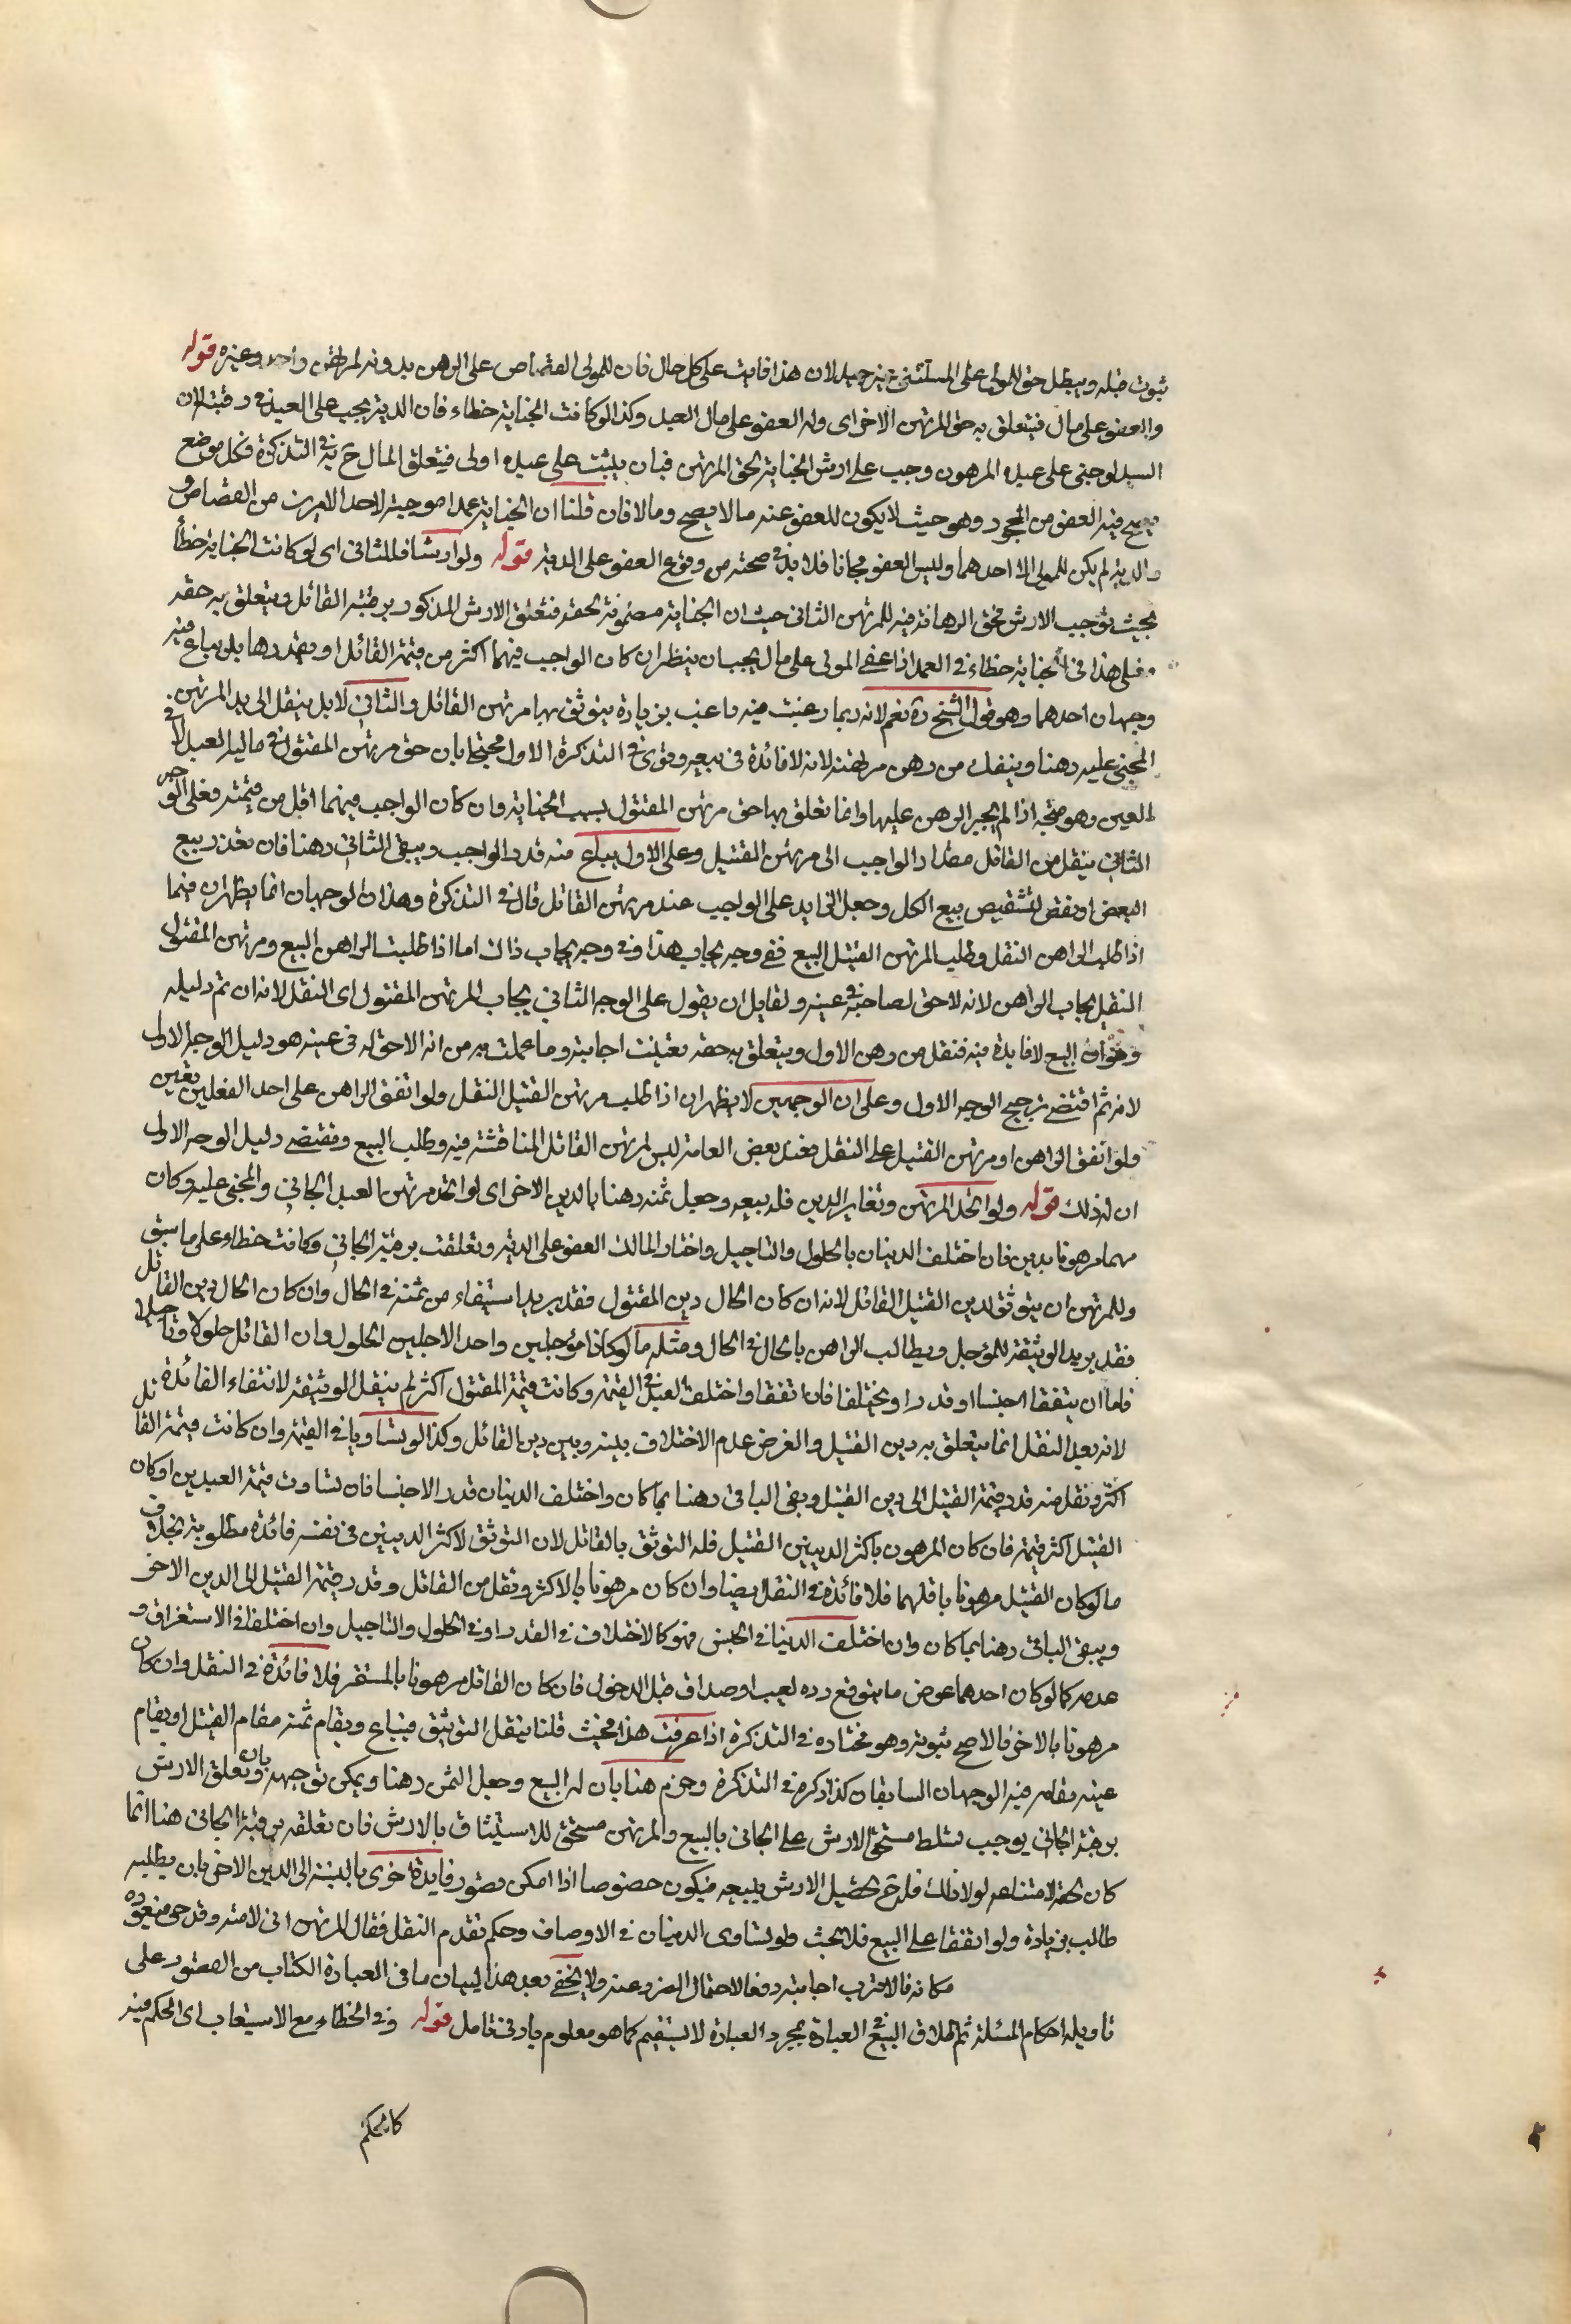 ثبوت قبله ويبطل حق المولى على المستثنى غير جيد لان هذا فايت على كل حال فان للمولى القصاص على الراهن بدونه لمرتهن واحد وغيره قوله
والعفو على مال فيتعلق به حق المرتهن الاخر اى وله العفو على مال العبد وكذا لو كانت الجناية خطاء فان الدية يجب على العبد فى رقبته لان
السيد لو جنى على عبده المرهون وجب عليه ارش الجناية لحق المرتهن فبان يثبت على عبده اولى فيتعلق المال ح به فى التذكرة فكل موضع
يصح فيه العفو من المحجور وهو حيث لا يكون للمعفو عنه مالا يصح ومالا فان قلنا ان الجناية عمدا موجبة لاحد الامرين من القصاص و
والدية لم يكن للمولى الا احدهما وليس العفو مجانا فلا بد فى صحته من وقوع العفو على الدية قوله ولو ارشا فللثانى اى لو كانت الجناية خطأ
بحيث توجب الارش فحق الرهانة فيه للمرتهن الثانى حيث ان الجناية مضمونة لحقه فتعلق الارش المذكور برقبة القاتل ويتعلق به حقه
فعلى هذا فى الجناية خطاء فى العمد اذا عفى المولى على مال يجب ان ينظر ان كان الواجب فيهما اكثر من قيمة القاتل او بقدرها بل يباع فيه
وجهان احدهما وهو قول الشيخ ره نعم لانه ربما رغبت فيه راغب بزيادة يتوثق بها مرتهن القاتل والثانى لا بل ينقل الى يد المرتهن
المجنى عليه رهنا وينفك من رهن مرتهنه لانه لا فائدة فى بيعه وقوى فى التذكرة الاول محتجا بان حق مرتهن المقتول فى مالية العبد لا فى
العين وهو متجه اذا لم يجبر الراهن عليها وانما تعلق بها حق مرتهن المقتول بسبب الجناية وان كان الواجب فيهما اقل من قيمته فعلى الوجه
الثانى ينقل من القاتل مقدار الواجب الى مرتهن القتيل وعلى الاول يباع منه قدر الواجب ويبقى الثانى رهنا فان تعذر بيع
البعض او نقص للتشقيص بيع الكل وجعل الزايد على الواجب عند مرتهن القاتل قال فى التذكرة وهذان الوجهان انما يظهران فيما
اذا طلب الراهن النقل وطلب المرتهن القتيل البيع ففى وجه يجاب هذا وفى وجه يجاب ذاك اما اذا طلب الراهن البيع ومرتهن المقتول
النقل يجاب الراهن لانه لا حق لصاحبه فى عينه ولقايل ان يقول على الوجه الثانى يجاب المرتهن المقتول اى النقل لانه ان تم دليله
وهو ان البيع لا فايدة فيه فنقله من رهن الاول ويتعلق به حقه تعينت اجابته وما عملت به من انه لا حق له فى عينه هو دليل الوجه الاول
لانه ثم اقتضى ترجيح الوجه الاول وعلى ان الوجهين لا يظهران اذا طلب مرتهن القتيل النقل ولو اتفق الراهن على احد الفعلين تعين
ولو اتفق الراهن او مرتهن القتيل على النقل فعند بعض العامة ليس لمرتهن القاتل المناقشة فيه وطلب البيع ومقتضى دليل الوجه الاول
ان له ذلك قوله ولو اتحد المرتهن وتغاير الدين فله بيعه وجعل ثمنه رهنا بالدين الاخر اى لو اتحد مرتهن العبد الجانى والمجنى عليه وكان
منهما مرهونا بدين فان اختلف الدينان بالحلول والتاجيل واختار المالك العفو على الدية وتعلقت برقبة الجانى وكانت خطاء على ما سبق
وللمرتهن ان يتوثق لدين القتيل القاتل لانه ان كان الحال دين المقتول فقد يريد استيفاء من ثمنه فى الحال وان كان الحال دين القاتل
فقد يريد الوثيقة للمؤجل ويطالب الراهن بالحال فى الحال ومثله ما لو كانا مؤجلين واحد الاجلين الحلول وان القاتل حلولا وتاجيلا
فاما ان يتفقا جنسا او قدرا او يختلفا فان اتفقا واختلف العبد فى القيمة وكانت قيمة المقتول اكثر لم ينقل الوثيقة لانتفاء الفائدة
لانه بعد النقل انما يتعلق به دين القتيل والغرض عدم الاختلاف بينه وبين دين القاتل وكذا لو تساويا فى القيمة وان كانت قيمة القاتل
اكثر ونقل منه قدر قيمة القتيل الى دين القتيل وبقى الباقى رهنا بما كان واختلف الدينان قدر الا جنسا فان تساوت قيمة العبدين او كان
القتيل اكثر قيمة فان كان المرهون باكثر الدينين القتيل فله التوثق بالقاتل لان التوثق لاكثر الدينين فى نفسه فائدة مطلوبة بخلاف
ما لو كان القتيل مرهونا باقلهما فلا فائدة فى النقل ايضا وان كان مرهونا بالاكثر ونقل من القاتل وقدر قيمة القتيل الى الدين الاخر
ويبقى الباقى رهنا بما كان وان اختلف الدينا فى الجنس فهو كالاختلاف فى القدر او فى الحلول والتاجيل وان اختلفا فى الاستغراق و
عدمه كما لو كان احدهما عوض ما يتوقع رده لعيب او صداق قبل الدخول فان كان القاتل مرهونا بالمستقر فلا فائدة فى النقل وان كان
مرهونا بالاخر فالاصح ثبوته وهو مختاره فى التذكرة اذا عرفت هذا فحيث قلنا ينقل التوثيق فيباع ويقام ثمنه مقام القتيل او يقام
عينه مقامه فيه الوجهان السابقان كذا ذكره فى التذكرة وجزم هنا بان له البيع وجعل الثمن رهنا ويمكن توجيهه بان تعلق الارش
برقبة الجانى يوجب تسلط مستحق الارش على الجانى بالبيع والمرتهن مستحق للاستيثاق بالارش فان تعلقه برقبة الجانى هنا انما
كان لحقه لامتناعه لولا ذلك فله ح تحصيل الارش ببيعه فيكون خصوصا اذا امكن تصور فايدة اخرى بالنسبة الى الدين الاخر بان يطلبه
طالب بزيادة ولو اتفقا على البيع فلا بحث ولو تساوى الدينان فى الاوصاف وحكم تقدم النقل فقال المرتهن انى لا امنه وقد جى فبيعوه
مكانه فالاقرب اجابته دفعا لاحتمال الضرر عنه ولا يخفى بعد هذا البيان ما فى العبارة الكتاب من القصور على
تاويله احكام المسئلة ثم اطلاق البيع فى العبارة بمجرد العبارة لا يستقيم كما هو معلوم بادنى تامل قوله وفى الخطاء مع الاستيعاب اى الحكم فيه
كالحكم